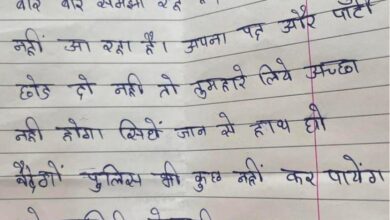 बार बार समझा रहे
नहीं आ रहा है। अपना पद और पार्टी
छोड दो नही तो तुमहारे लिये अच्छा
नही होगा सिर्घे जान से हाथ धो
बैठेगों पुलिस भी कुछ नहीं कर पायेंग